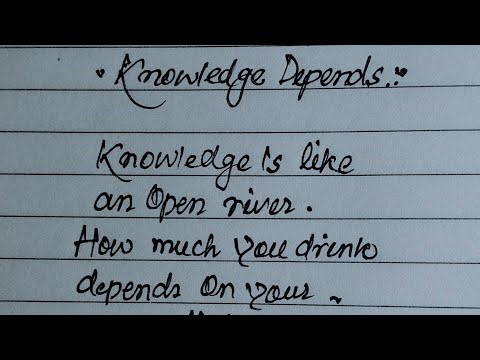 Knowledge Depends..
Knowledge Is like
an Open river.
How much you drink
depends On your